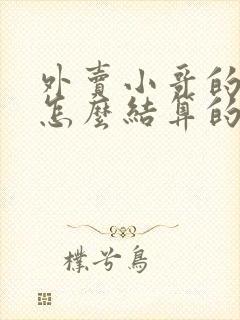 外賣小哥的
怎麼結算的
樸兮鳥